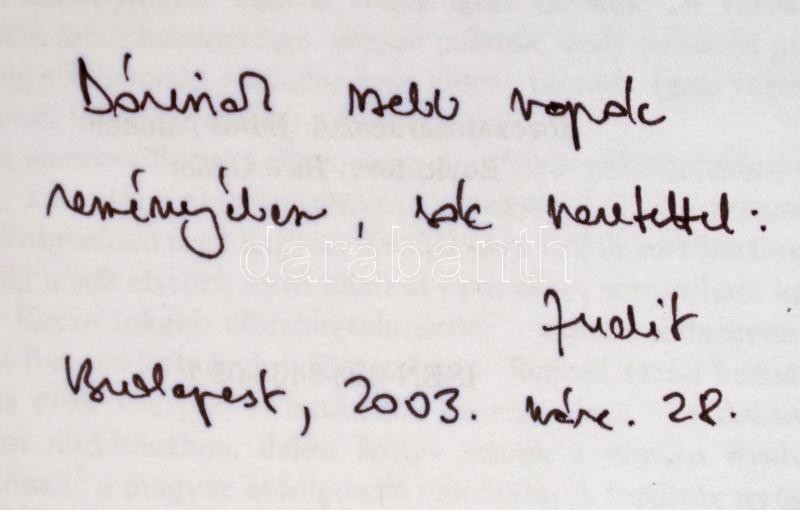 Dórinak szebb napok
reményében, sok szeretettel:
darabanth
Judit
Budapest, 2003. márc. 28.